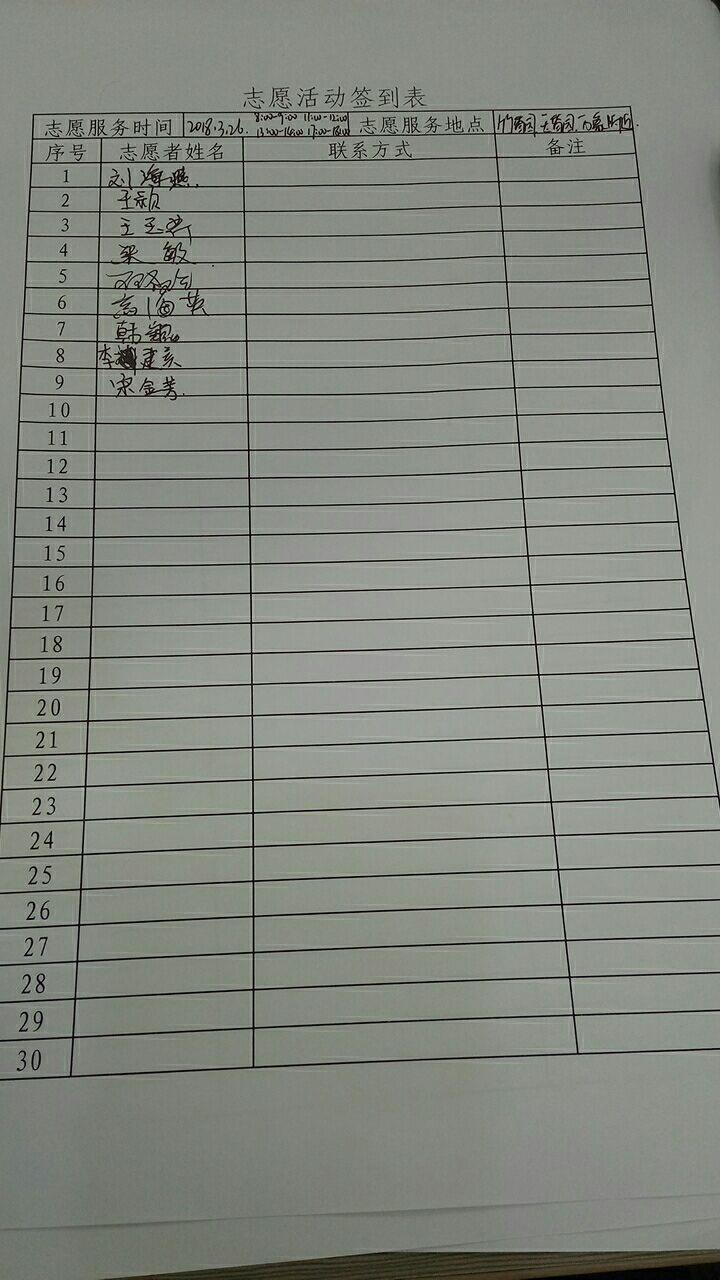 志愿活动签到表
志愿服务时间 2018.3.26. 8:00-9:00 11:00-12:00 13:00-14:00 17:00-18:00 志愿服务地点
序号 志愿者姓名 联系方式 备注
1 刘海燕
2 于颖
3 王玉
4 梁敏
5 邓
6 高海英
7 韩
8 李建
9 宋金芳
10
11
12
13
14
15
16
17
18
19
20
21
22
23
24
25
26
27
28
29
30